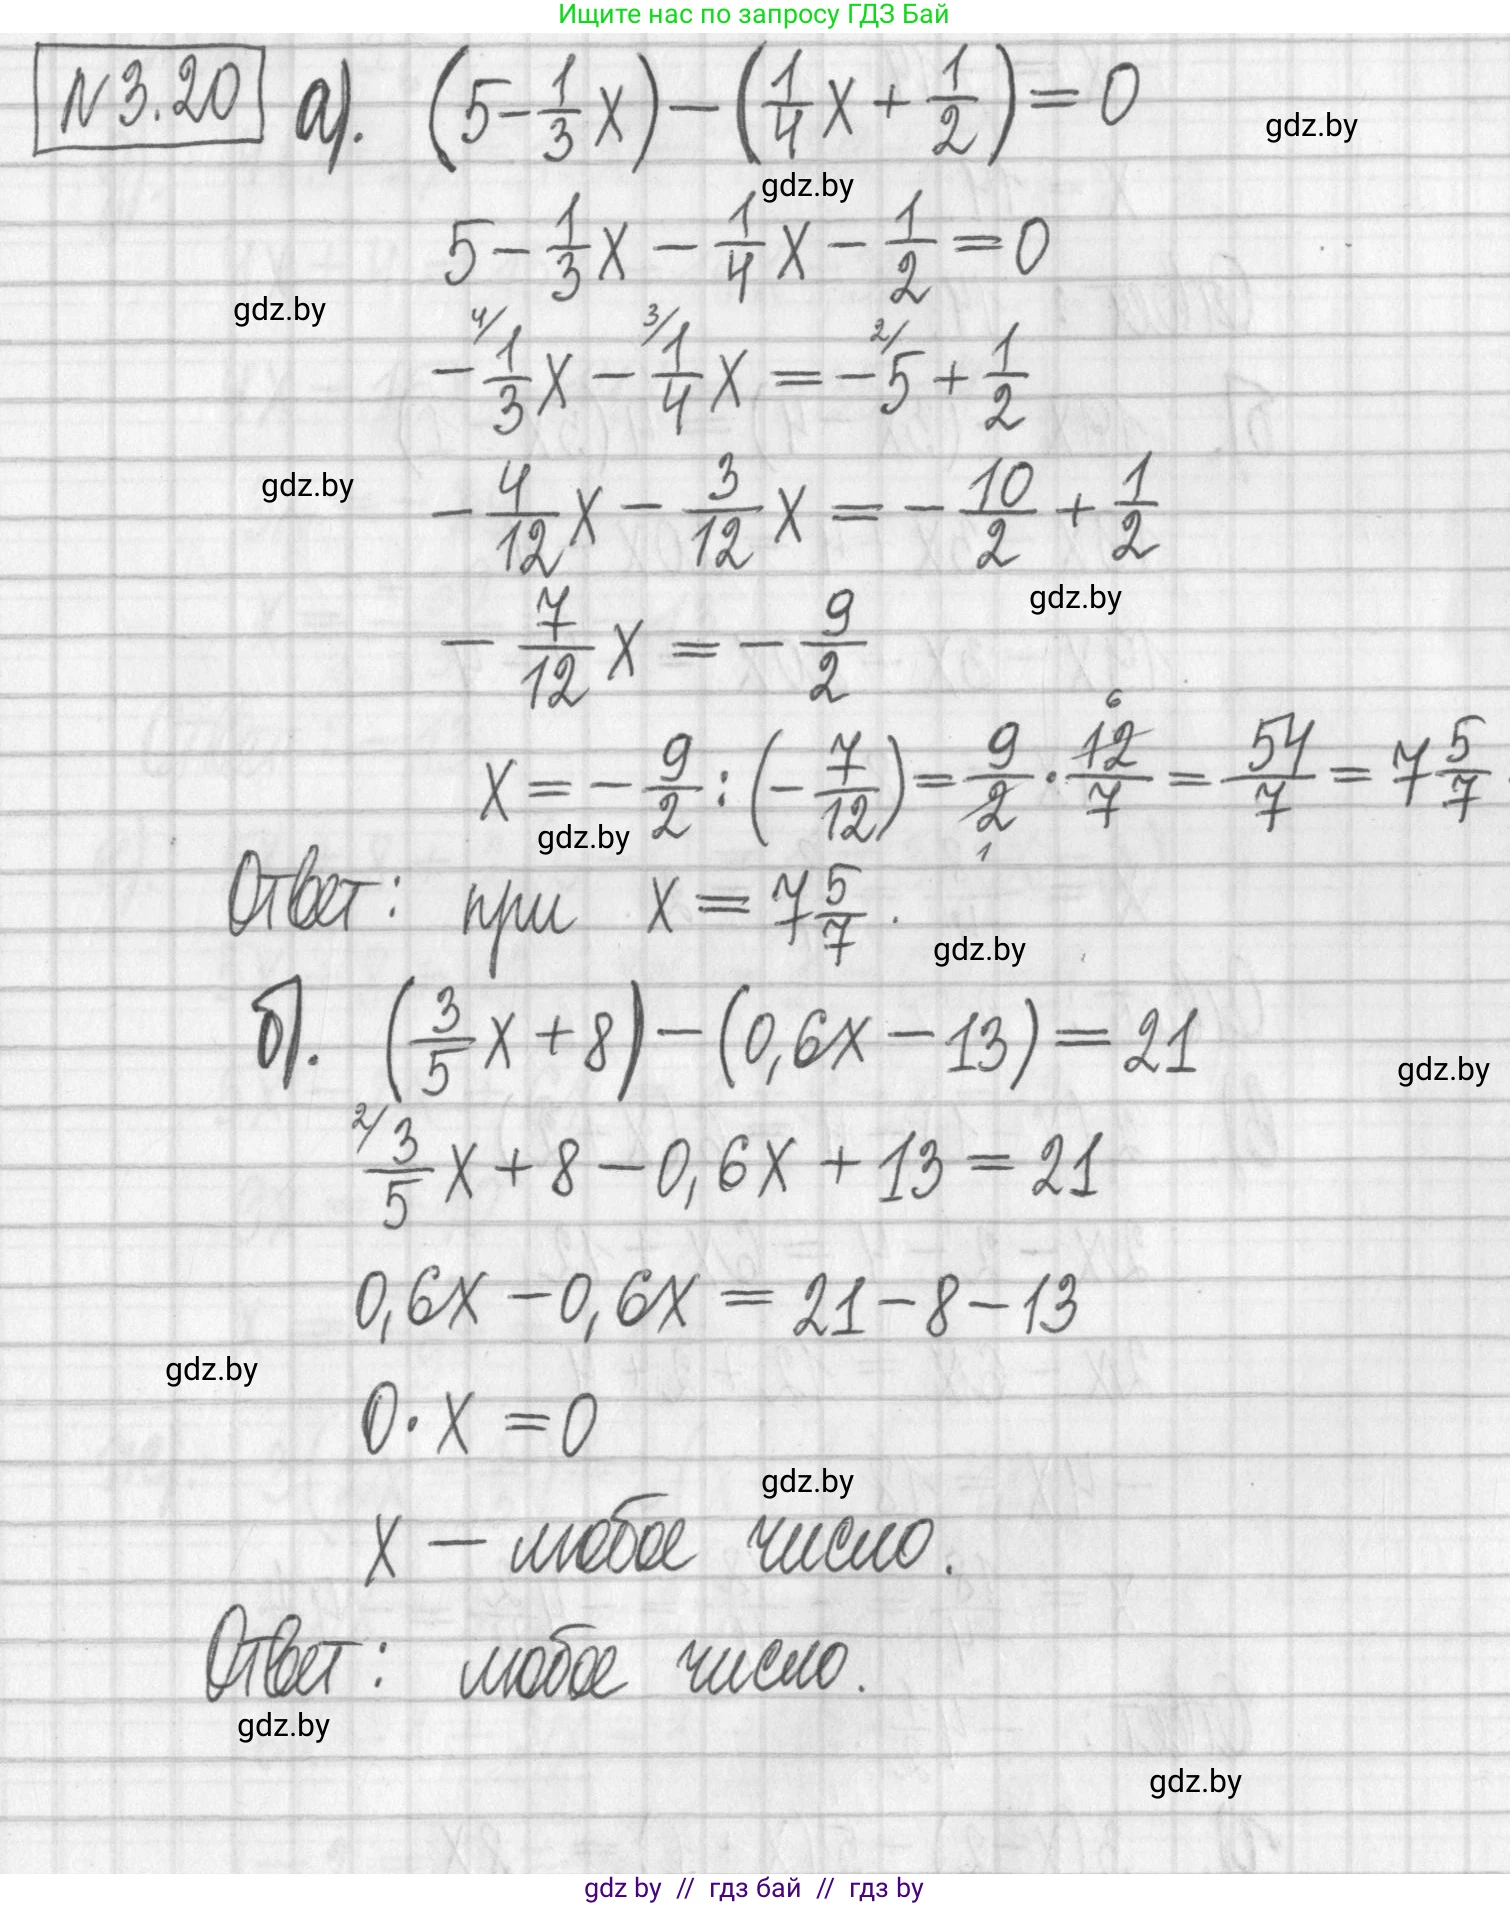 Ищите нас по запросу ГДЗ Бай
№3.20 а). (5 - 1/3 x) - (1/4 x + 1/2) = 0
gdz.by
gdz.by
5 - 1/3 x - 1/4 x - 1/2 = 0
gdz.by
- 4/ 1/3 x - 3/ 1/4 x = - 2/ 5 + 1/2
gdz.by
- 4/12 x - 3/12 x = - 10/2 + 1/2
gdz.by
- 7/12 x = - 9/2
x = - 9/2 : (- 7/12) = 9/2 1 · 12 6/7 = 54/7 = 7 5/7
gdz.by
Ответ: при x = 7 5/7.
gdz.by
б). (3/5 x + 8) - (0,6x - 13) = 21
gdz.by
2/ 3/5 x + 8 - 0,6x + 13 = 21
0,6x - 0,6x = 21 - 8 - 13
gdz.by
0 · x = 0
gdz.by
x - любое число.
Ответ: любое число.
gdz.by
gdz.by
gdz by // гдз бай // гдз by